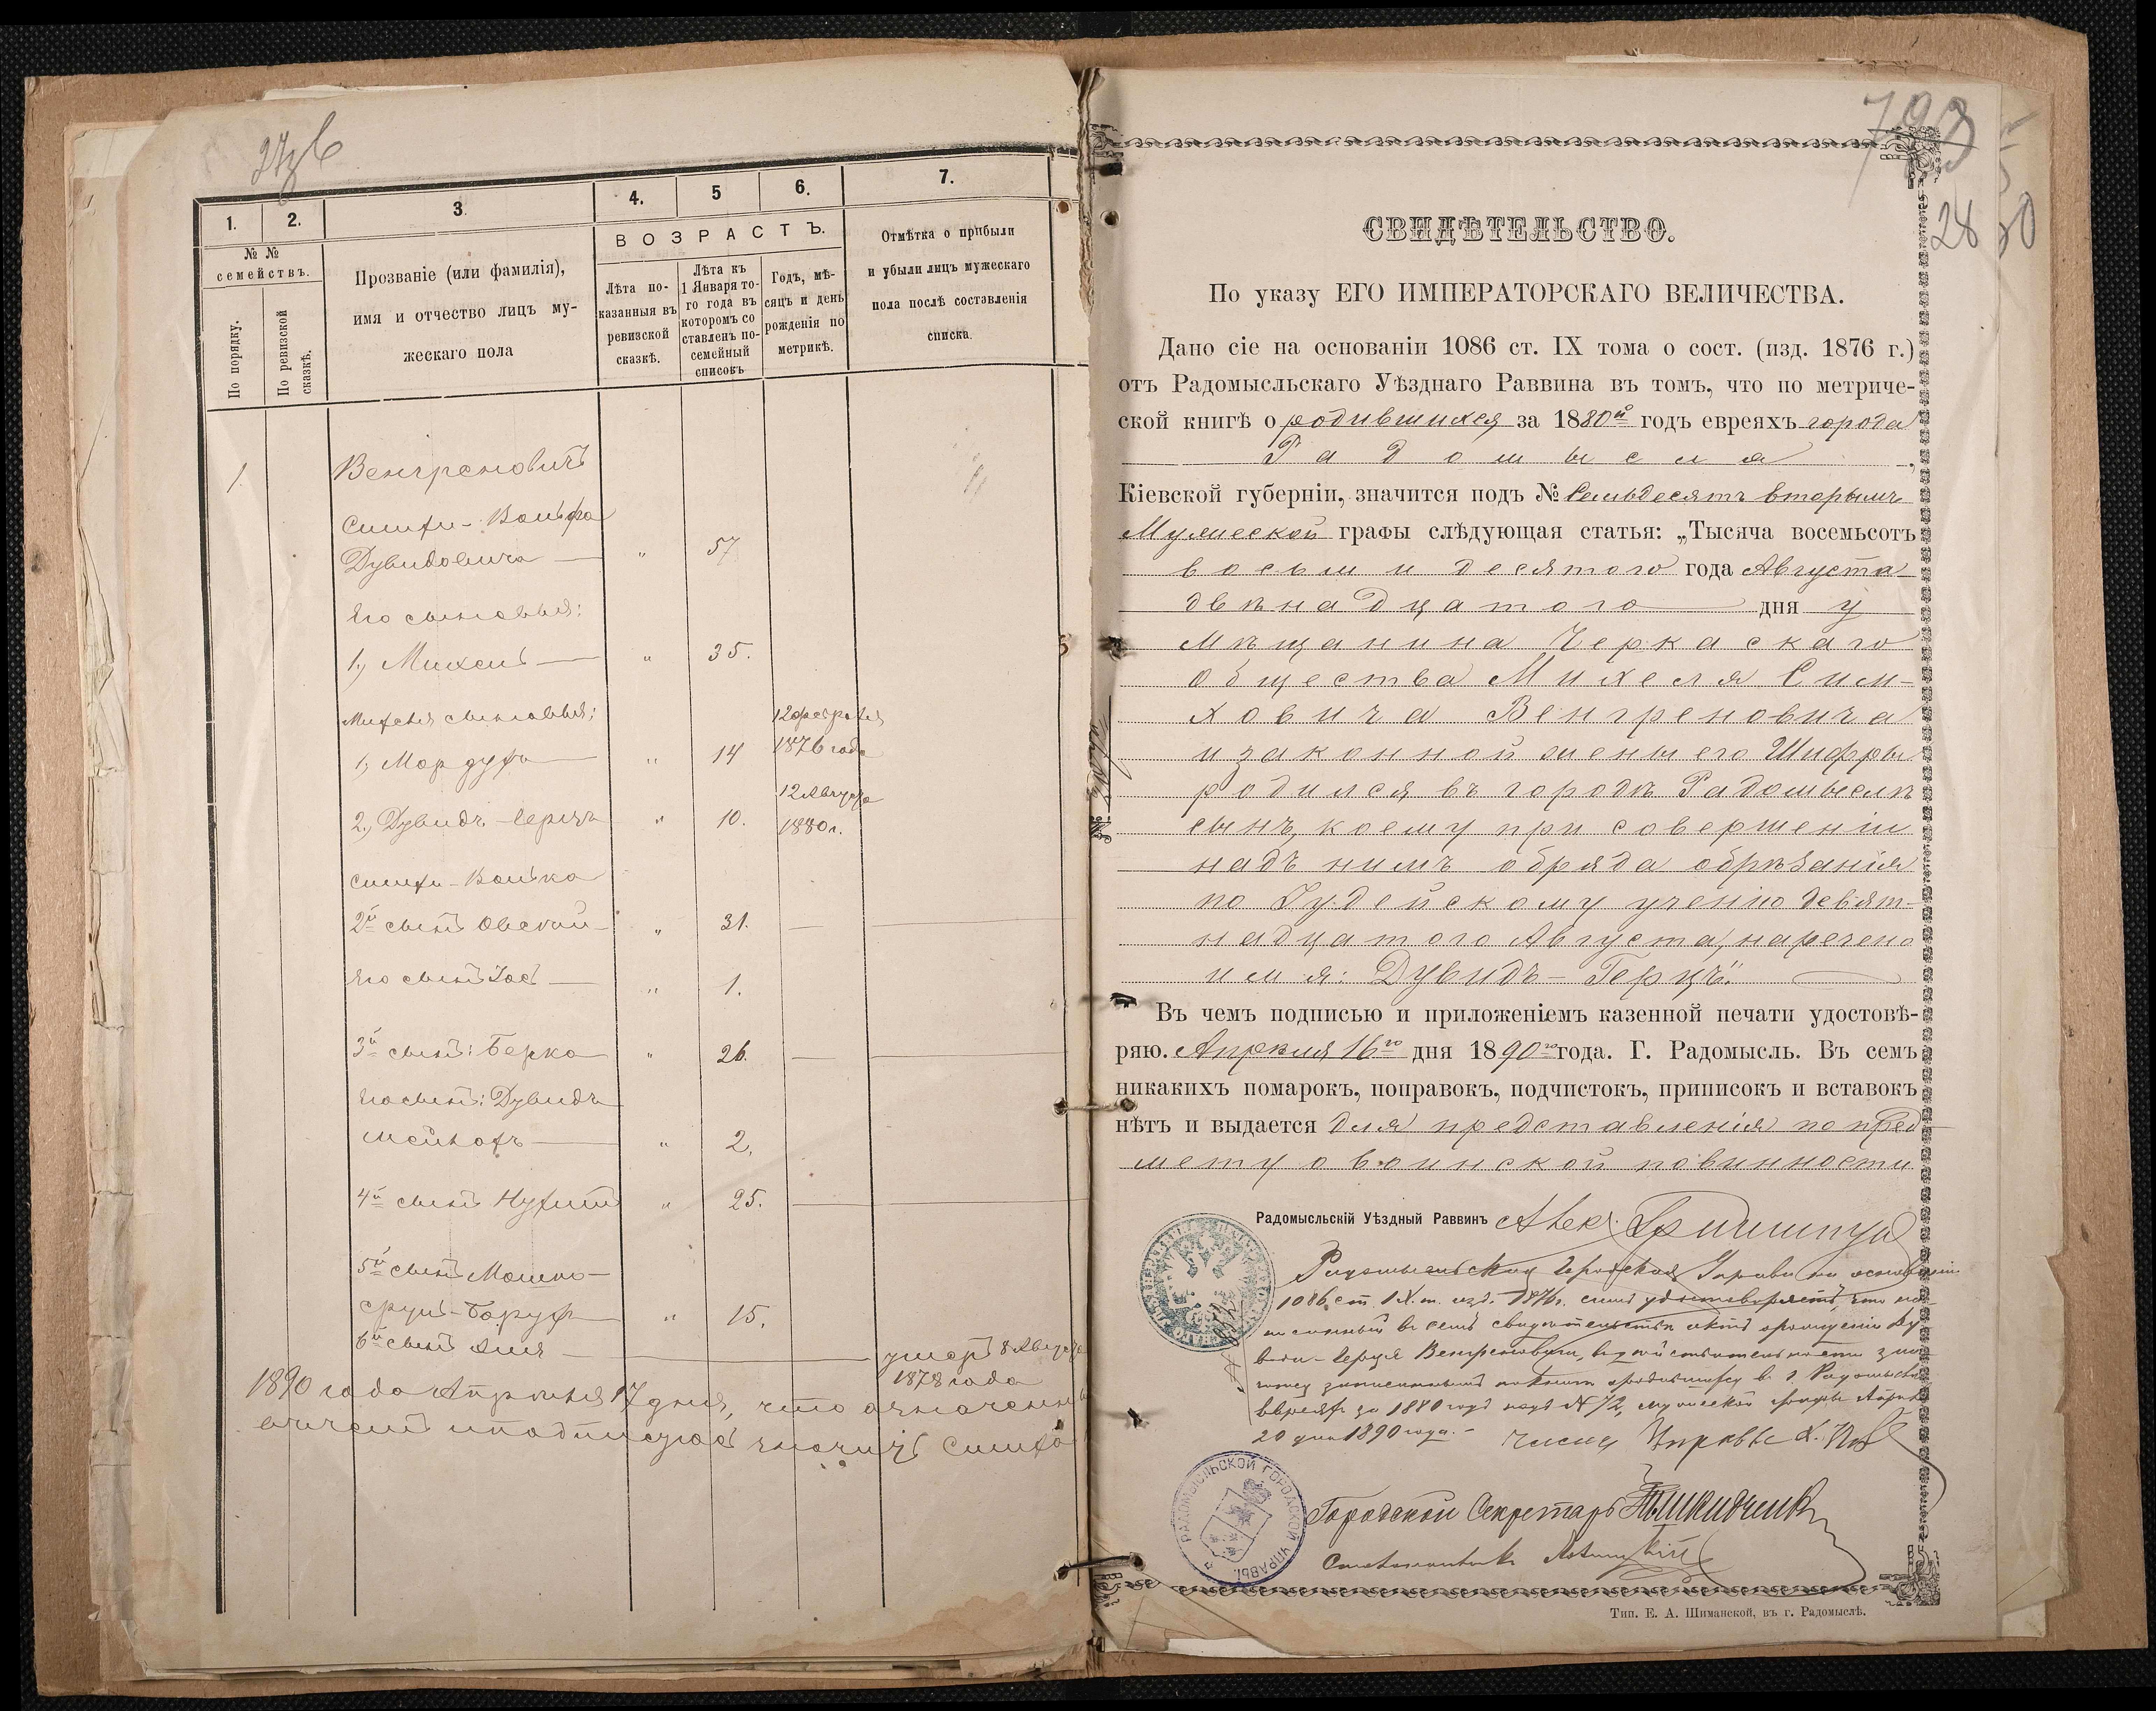 1.
2.
3.
4.
5
6.
7.
№ №
семействъ.
По порядку.
По ревизской
сказкѣ.
Прозваніе (или фамилія),
имя и отчество лицъ му-
жескаго пола
ВОЗРАСТЪ.
Лѣта по-
казанныя въ
ревизской
сказкѣ.
Лѣта къ
1 Января то-
го года въ
которомъ со
ставленъ по-
семейный
списокъ
Годъ, мѣ-
сяцъ и день
рожденія по
метрикѣ.
Отмѣтка о прибыли
и убыли лицъ мужескаго
пола послѣ составленія
списка.
1.
Венгреновичъ
Симхи-Вольфа
Дувидовича — „ 57
Его сыновья:
1, Михель — „ 35.
Михеля сыновья:
1, Мордухъ — „ 14 12 февраля 1876 года
2, Дувидъ-Герцъ „ 10. 12 Августа 1880 г.
Симхи-Волька
2й сынъ Овсей — „ 31.
Его сынъ — „ 1.
3й сынъ: Берко „ 26.
Его сынъ: Дувидъ
— „ 2.
4й сынъ Нухим „ 25.
5й сынъ Мошко-
Срул-Борух „ 15.
6й сынъ — умеръ 8 Августа
1878 года
1890 года Апреля 17 дня, что означенны
Симха
793
28
30
СВИДѢТЕЛЬСТВО.
По указу ЕГО ИМПЕРАТОРСКАГО ВЕЛИЧЕСТВА.
Дано сіе на основаніи 1086 ст. IX тома о сост. (изд. 1876 г.)
отъ Радомысльскаго Уѣзднаго Раввина въ томъ, что по метриче-
ской книгѣ о родившихся за 1880й годъ евреяхъ города
Радомысля,
Кіевской губерніи, значится подъ № Семьдесятъ вторымъ
Мужеской графы слѣдующая статья: „Тысяча восемьсотъ
восьмидесятого года Августа
двѣнадцатого — дня у
мѣщанина Черкаскаго
общества Михеля Сим-
ховича Венгреновича
и законной жены его Шифры
родился въ городѣ Радомыслѣ
сынъ, коему при совершеніи
надъ нимъ обряда обрѣзанія
по Іудейскому ученію девят-
надцатого Августа, наречено
имя: Дувидъ-Герцъ“.
Въ чемъ подписью и приложеніемъ казенной печати удостовѣ-
ряю. Апрѣля 16го дня 1890го года. Г. Радомысль. Въ семъ
никакихъ помарокъ, поправокъ, подчистокъ, приписокъ и вставокъ
нѣтъ и выдается для представленія по пред-
мету о воинской повинности
Радомысльскій Уѣздный Раввинъ
Радомысльская Городская Управа на основаніи
1086 ст. IX т. изд. 1876 г. симъ удостоверяетъ, что на-
писанный въ семъ свидетельстве актъ о рожденіи Ду-
вида-Герця Венгреновича, въ действительности
въ г. Радомысле
евреях за 1880 годъ подъ № 72, мужеской графы Апреля
20 дня 1890 года. — Членъ Управы
РАДОМЫСЛЬСКОЙ ГОРОДСКОЙ УПРАВЫ.
Городской Секретарь
Тип. Е. А. Шиманской, въ г. Радомыслѣ.